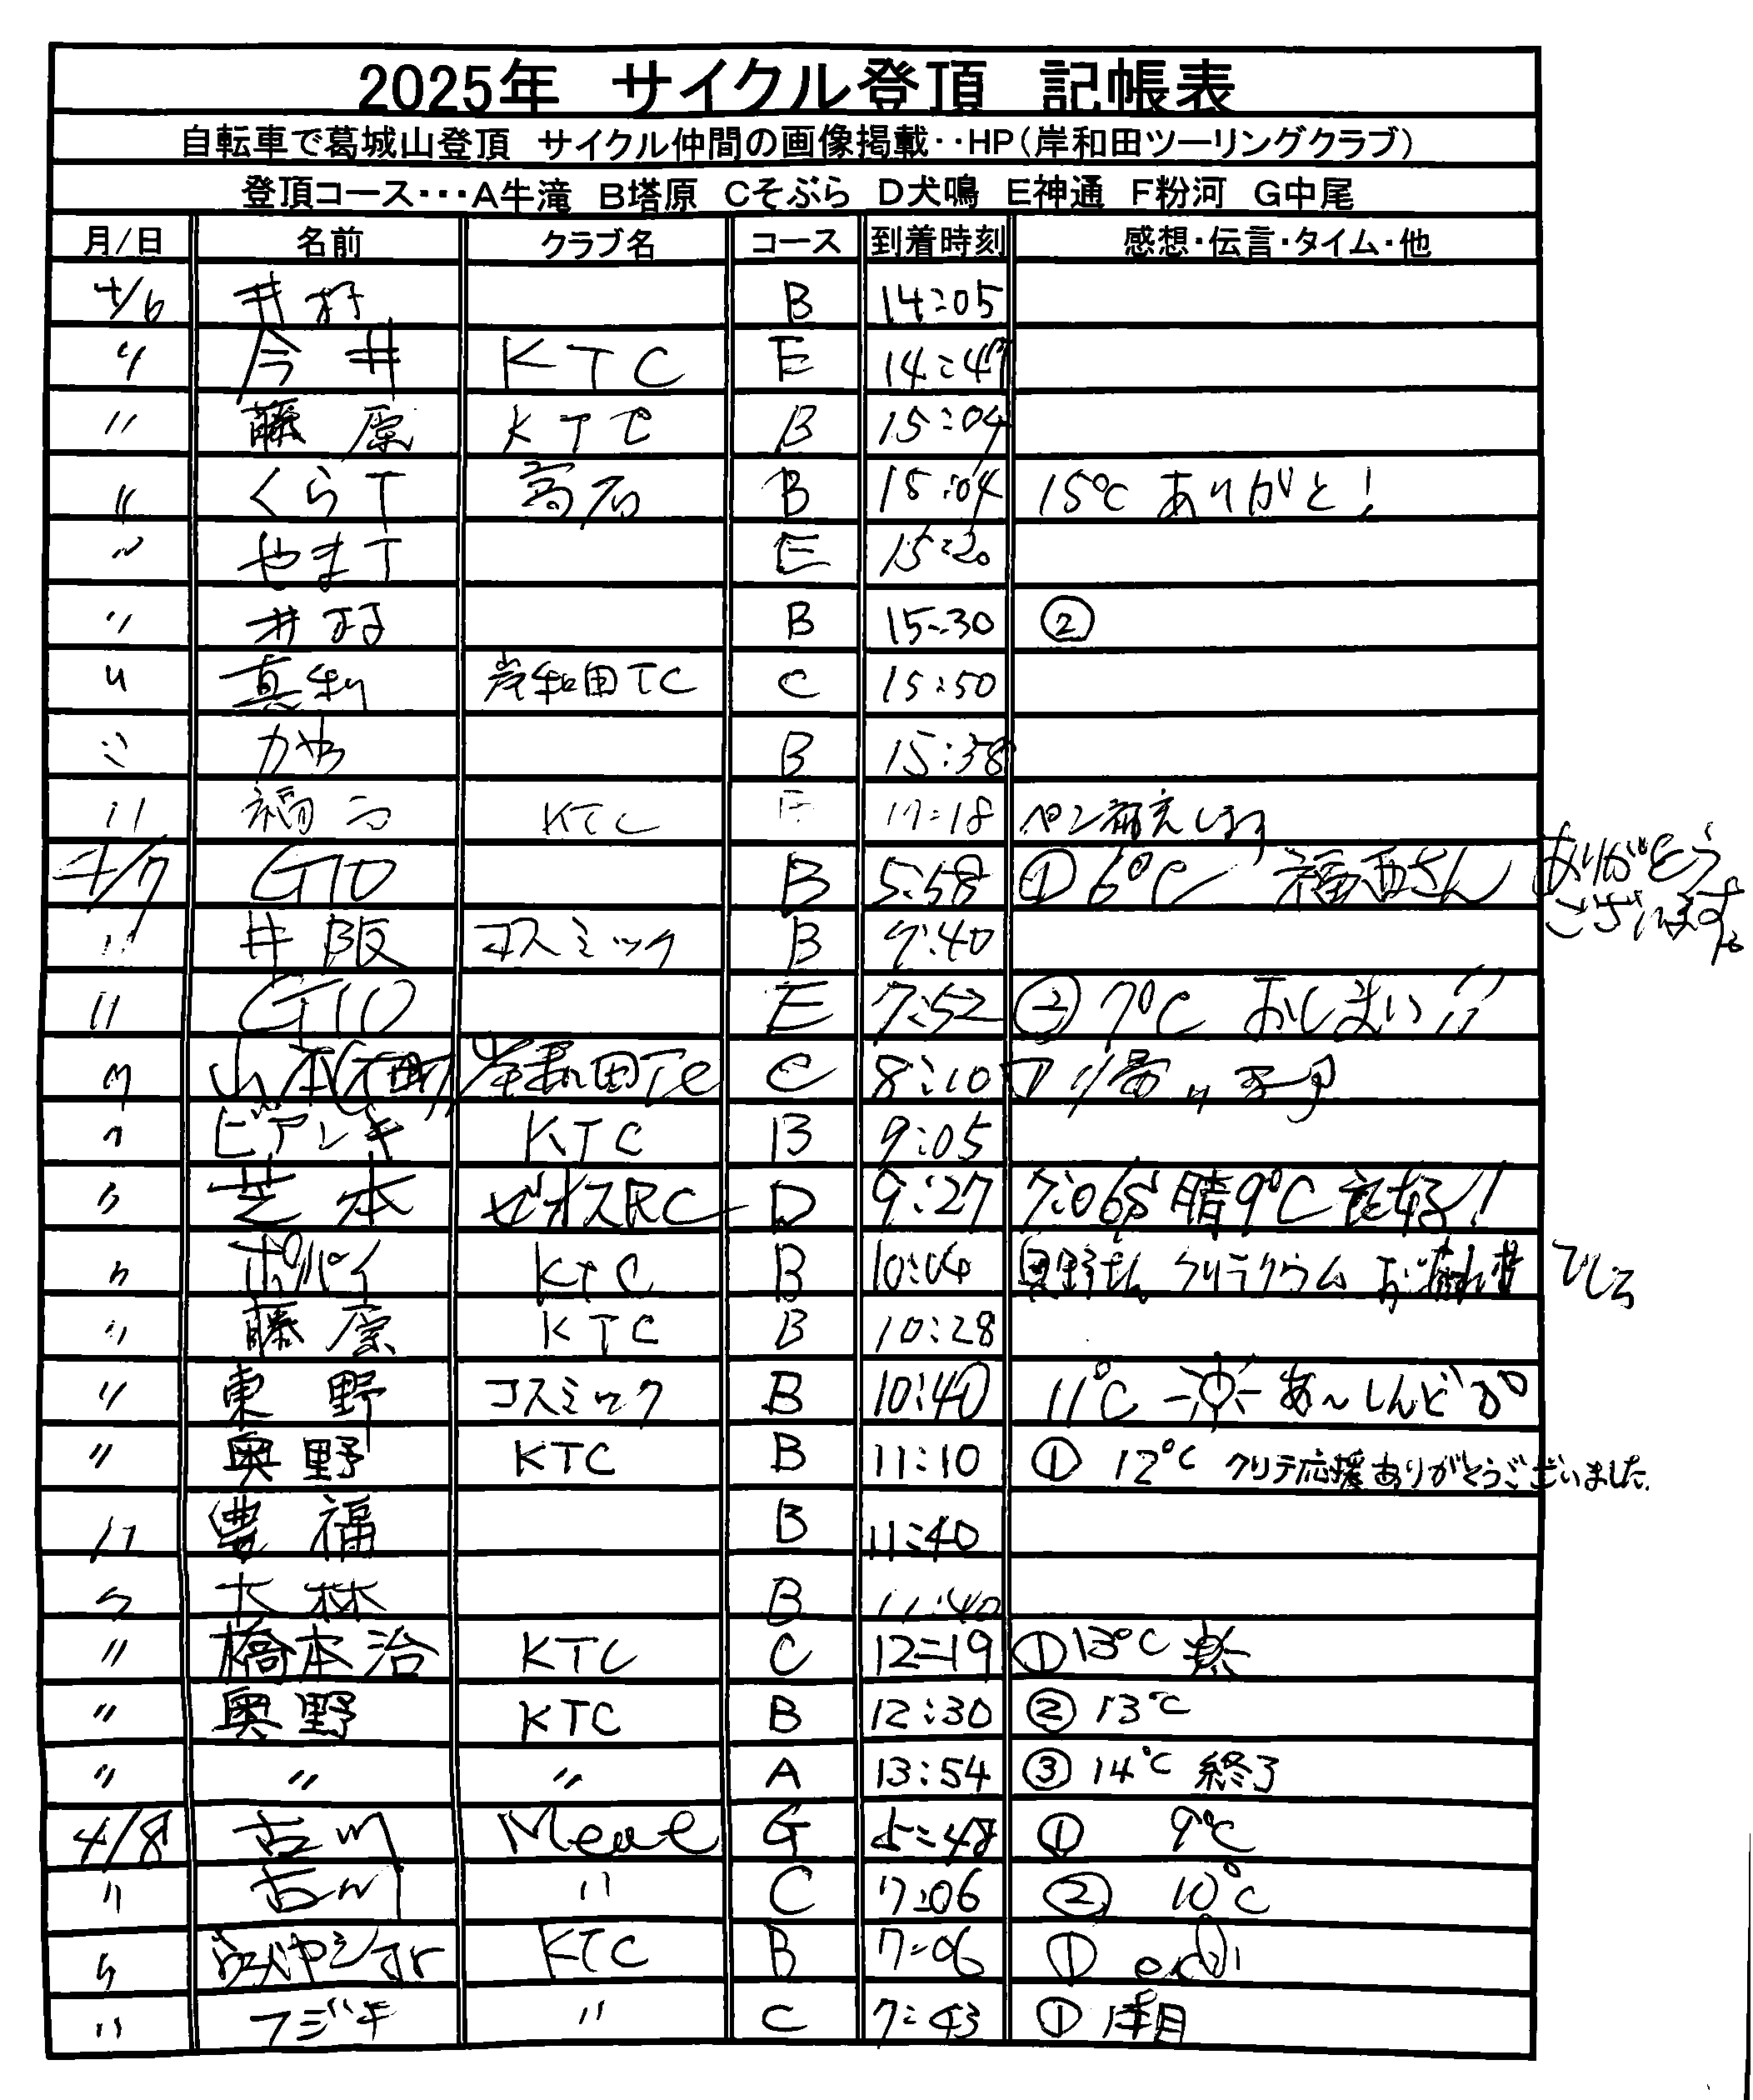 2025年 サイクル登頂 記帳表
自転車で葛城山登頂 サイクル仲間の画像掲載‥HP(岸和田ツーリングクラブ)
登頂コース･･･A牛滝 B塔原 Cそぶら D犬鳴 E神通 F粉河 G中尾
月/日 名前 クラブ名 コース 到着時刻 感想・伝言・タイム・他
4/6 井 B 14:05
〃 今井 KTC E 14:47
〃 藤原 KTC B 15:04
〃 くらT 高石 B 15:04 15℃ ありがと!
〃 やまT E 15:20
〃 井 B 15:30 ②
〃 真利 岸和田TC C 15:50
〃 かわ B 15:38
〃 KTC 17:18 ペン補充します
4/7 GIO B 5:58 ① 6℃ 福西さん ありがとう
ございます。
〃 井阪 コスミック B 7:40
〃 GIO E 7:52 ② 7℃ おしまい!!
〃 山本 岸和田TC C 8:10
〃 ビアンキ KTC B 9:05
〃 芝本 ゼオスRC D 9:27 7:06 晴9℃
〃 ポパイ KTC B 10:04 奥野さん クリテリウム お疲れ様 でした
〃 藤原 KTC B 10:28
〃 東野 コスミック B 10:40 11℃ あ～しんど
〃 奥野 KTC B 11:10 ① 12℃ クリテ応援ありがとうございました.
〃 豊福 B 11:40
〃 大林 B 11:40
〃 橋本治 KTC C 12:19 ① 13℃
〃 奥野 KTC B 12:30 ② 13℃
〃 〃 〃 A 13:54 ③ 14℃ 終了
4/8 古川 G 5:48 ① 9℃
〃 古川 〃 C 7:06 ② 10℃
〃 KTC B 7:06 ①
〃 フジキ 〃 C 7:43 ①